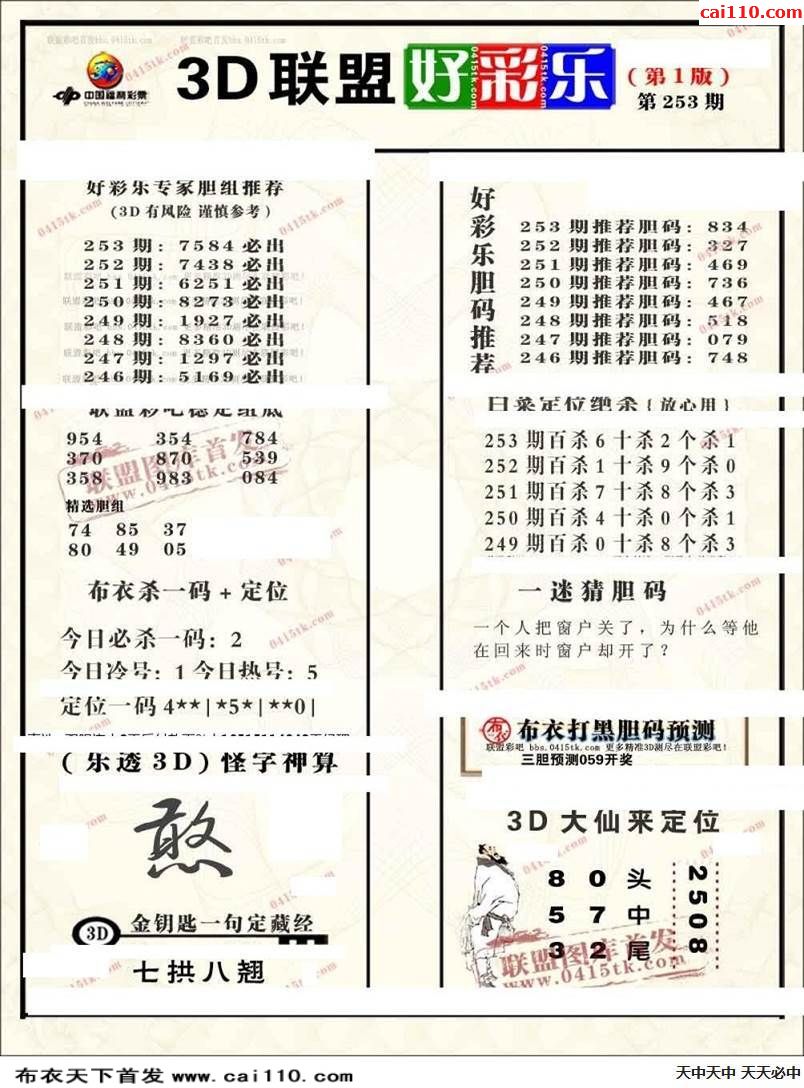 cai110.com
联盟彩吧首发bbs.0415tk.com 联盟彩吧首发bbs.0415tk.com
中国福利彩票
CHINA WELFARE LOTTERY
3D联盟好彩乐
0415tk.com
(第1版)
第253期
好彩乐专家胆组推荐
(3D有风险 谨慎参考)
253期:7584必出
252期:7438必出
251期:6251必出
250期:8273必出
249期:1927必出
248期:8360必出
247期:1297必出
246期:5169必出
好彩乐胆码推荐
253期推荐胆码:834
252期推荐胆码:327
251期推荐胆码:469
250期推荐胆码:736
249期推荐胆码:467
248期推荐胆码:518
247期推荐胆码:079
246期推荐胆码:748
联盟彩吧稳定组底
954 354 784
370 870 539
358 983 084
联盟图库首发
www.0415tk.com
精选胆组
74 85 37
80 49 05
白菜定位绝杀{放心用}
253期百杀6十杀2个杀1
252期百杀1十杀9个杀0
251期百杀7十杀8个杀3
250期百杀4十杀0个杀1
249期百杀0十杀8个杀3
布衣杀一码+定位
今日必杀一码:2
今日冷号:1今日热号:5
定位一码4**|*5*|**0|
一迷猜胆码
一个人把窗户关了，为什么等他
在回来时窗户却开了？
布衣打黑胆码预测
联盟彩吧 bbs.0415tk.com 更多精准3D测尽在联盟彩吧!
三胆预测059开奖
(乐透3D)怪字神算
憨
3D 金钥匙一句定藏经
七拱八翘
3D大仙来定位
8 0 头
5 7 中
3 2 尾
2508
联盟图库首发
www.0415tk.com
布衣天下首发 www.cai110.com
天中天中 天天必中